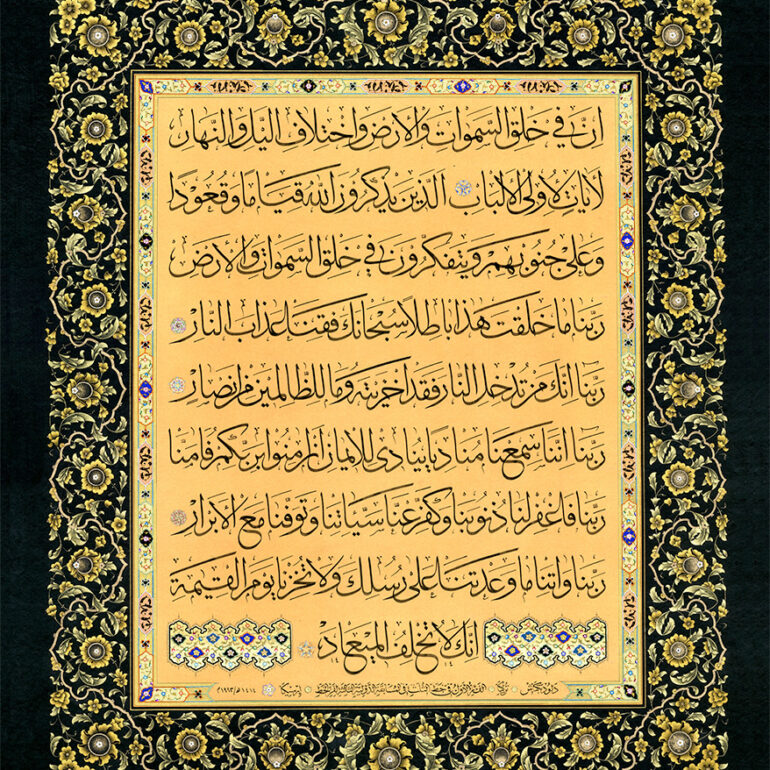 ان في خلق السموات والارض واختلاف اليل والنهار
لايات لاولى الالباب الذين يذكرون الله قياما وقعودا
وعلى جنوبهم ويتفكرون في خلق السموات والارض
ربنا ما خلقت هذا باطلا سبحانك فقنا عذاب النار
ربنا انك من تدخل النار فقد اخزيته وما للظالمين من انصار
ربنا اننا سمعنا مناديا ينادى للايمان ان امنوا بربكم فامنا
ربنا فاغفر لنا ذنوبنا وكفر عنا سيئاتنا وتوفنا مع الابرار
ربنا واتنا ما وعدتنا على رسلك ولا تخزنا يوم القيمة
انك لا تخلف الميعاد
١٤١٤ه/١٩٩٣م